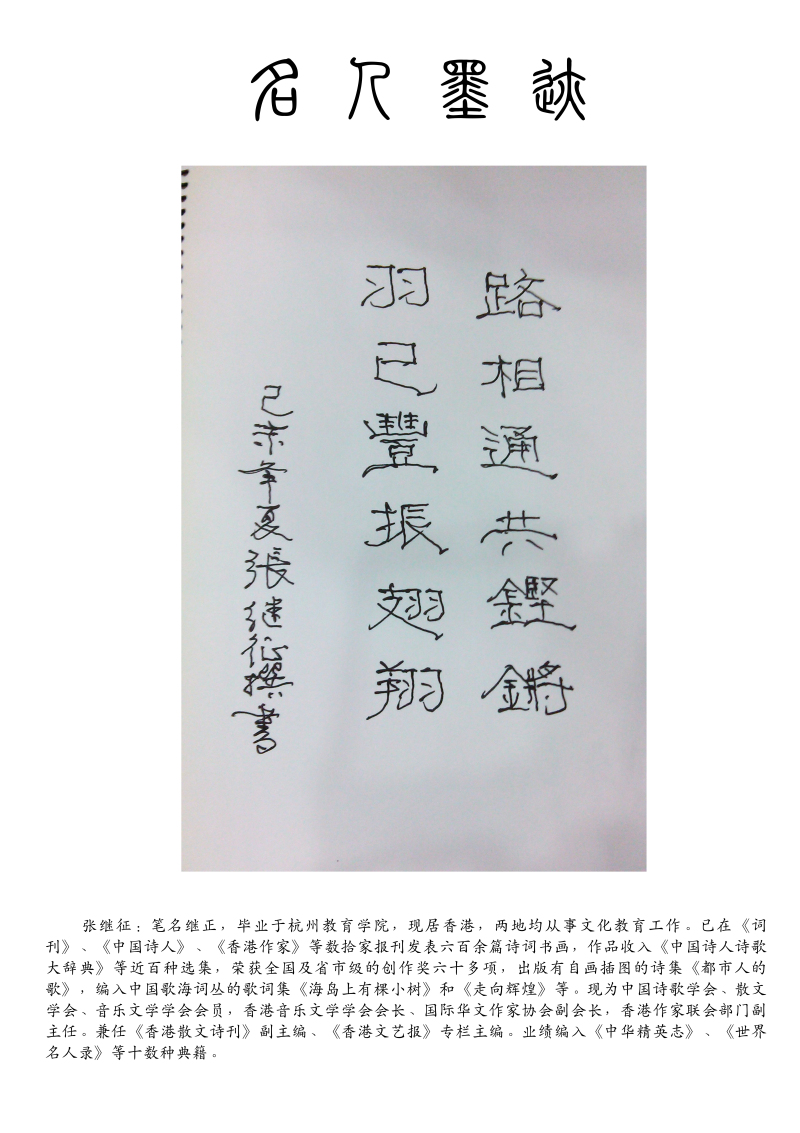 名人墨迹
路相通共鏗鏘
羽已豐振翅翔
己未年夏張继征撰書
张继征：笔名继正，毕业于杭州教育学院，现居香港，两地均从事文化教育工作。已在《词
刊》、《中国诗人》、《香港作家》等数拾家报刊发表六百余篇诗词书画，作品收入《中国诗人诗歌
大辞典》等近百种选集，荣获全国及省市级的创作奖六十多项，出版有自画插图的诗集《都市人的
歌》，编入中国歌海词丛的歌词集《海岛上有棵小树》和《走向辉煌》等。现为中国诗歌学会、散文
学会、音乐文学学会会员，香港音乐文学学会会长、国际华文作家协会副会长，香港作家联会部门副
主任。兼任《香港散文诗刊》副主编、《香港文艺报》专栏主编。业绩编入《中华精英志》、《世界
名人录》等十数种典籍。